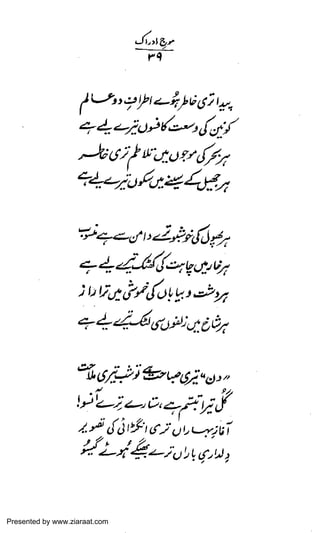 موجِ ادراک
۳۹
پیدا تری خاطر ہوئے اطراف دو عالم
کونین کی وسعت کا فسوں تیرے لیے ہے
ہر بحر کی موجوں میں تلاطم تری خاطر
ہر جھیل کے سینے میں سکوں تیرے لیے ہے
ہر پھول کی خوشبو ترے دامن سے ہے منسوب
ہر خار میں چاہت کی کھٹک تیرے لیے ہے
ہر دشت و بیاباں کی خموشی میں ترا راز
ہر شاخ میں زلفوں سی لٹک تیرے لیے ہے
"دن" تیری صباحت ہے تو شب تیری ملاحت
گُل تیرا تبسّم ہے، ستارے ترے آنسو!
آغازِ بہاراں تری انگڑائی کی تصویر
دِلداریِ باراں ترے بھیگے ہُوئے گیسُو
Presented by www.ziaraat.com